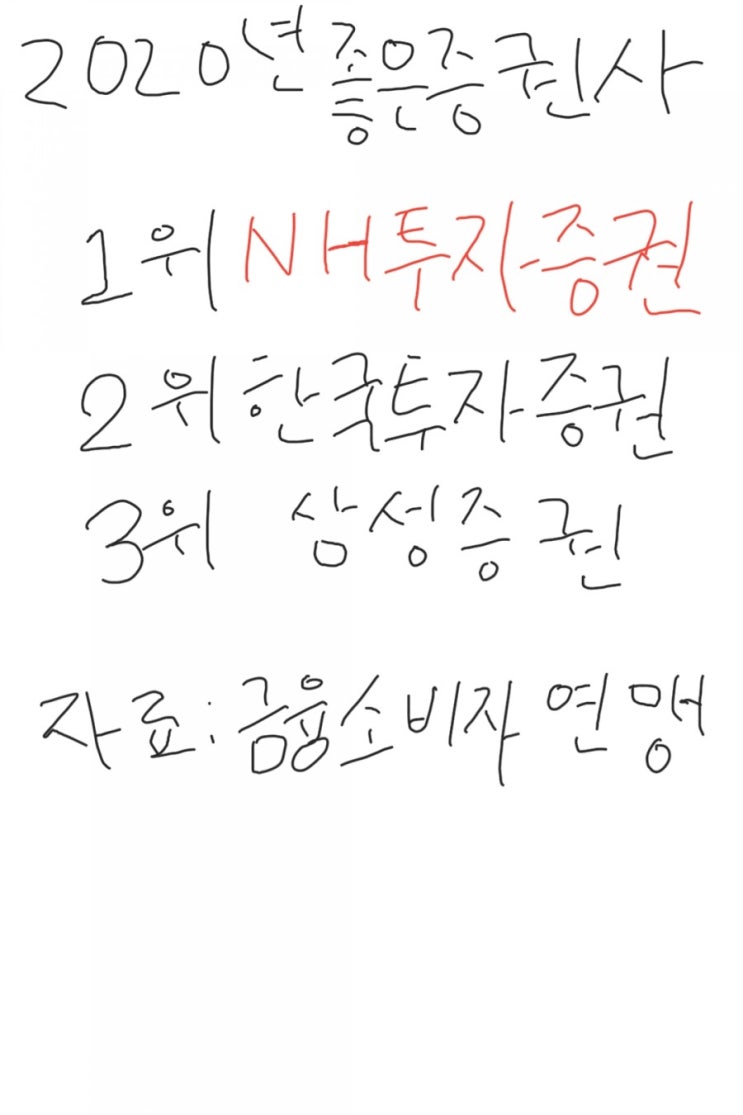 2020년 좋은증권사
1위 NH투자증권
2위 한국투자증권
3위 삼성증권
자료:금융소비자 연맹